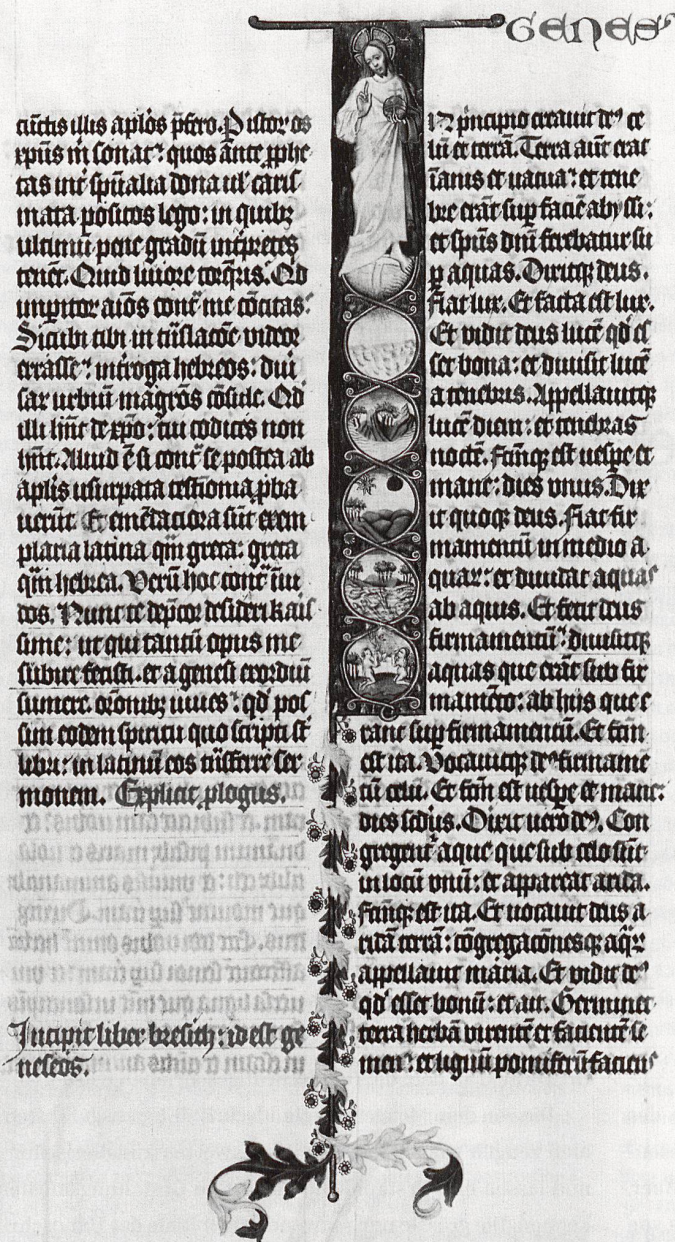 GENES⁹
cūctis illis aplōs p̄fero. P istor os
xp̄us m̄ sonat: quos ante ꝓphe
tas int̄ spūalia dona ul' caris
mata positos lego: in quibȝ
ultimū pene gradū int̄pretes
tenēt. Quid livore torq̄ris. Qd
imp̄itor aiōs cont̄ me cōcitas:
Sicubi tibi in trāslacōe videor
errasse: int̄roga hebreos: diu
sar urbiū magr̄os cōsule. Qd
illi hn̄t de xp̄o: tui codices non
hn̄t. Aliud ē si cont̄ se postea ab
aplis usurpata testiōia ꝓba
verūt. Et emēdaciora sūt exem
plaria latina q̄m greca: greca
q̄m hebrea. Verū hoc cont̄ īvi
dos. Nunc te dep̄cor desideri kais
sime: ut qui tantū opus me
subire fecisti. et a genesi exordiū
sumere. or̄onibȝ iuves: qd pos
sim eodem spiritu quo scripti st̄
libri: in latinū eos trāsferre ser
monem. Explicit ꝓlogus.
Incipit liber bresith: id est ge
neseos.
IN principio creavit de⁹ ce
lū et terrā. Terra aut̄ erat
īanis et vacua: et tene
bre erāt sup faciē abyssi:
et spūs dn̄i ferebatur su
ꝑ aquas. Dixitqȝ deus.
Fiat lux. Et facta est lux.
Et vidit deus lucē qd' es
set bona: et divisit lucē
a tenebris. Appellavitqȝ
lucē diem: et tenebras
noctē. Factūqȝ est vespe et
mane: dies unus. Dix
it quoqȝ deus. Fiat fir
mamentū in medio a
quaꝝ: et dividat aquas
ab aquis. Et fecit deus
firmamentū: divisitqȝ
aquas que erāt sub fir
mamēto: ab hiis que e
rant sup firmamentū. Et fc̄m
est ita. Vocavitqȝ de⁹ firmame
tū celū. Et fc̄m est vespe et mane:
dies scd̄us. Dixit vero de⁹. Con
gregent̄ aque que sub celo sūt
in locū unū: et appareat arida.
Factūqȝ est ita. Et vocavit deus a
ridā terrā: cōgregacōnesqȝ aqꝝ
appellavit maria. Et vidit de⁹
qd' esset bonū: et ait. Germinet
terra herbā virentē et facientē se
men: et lignū pomiferū faciens